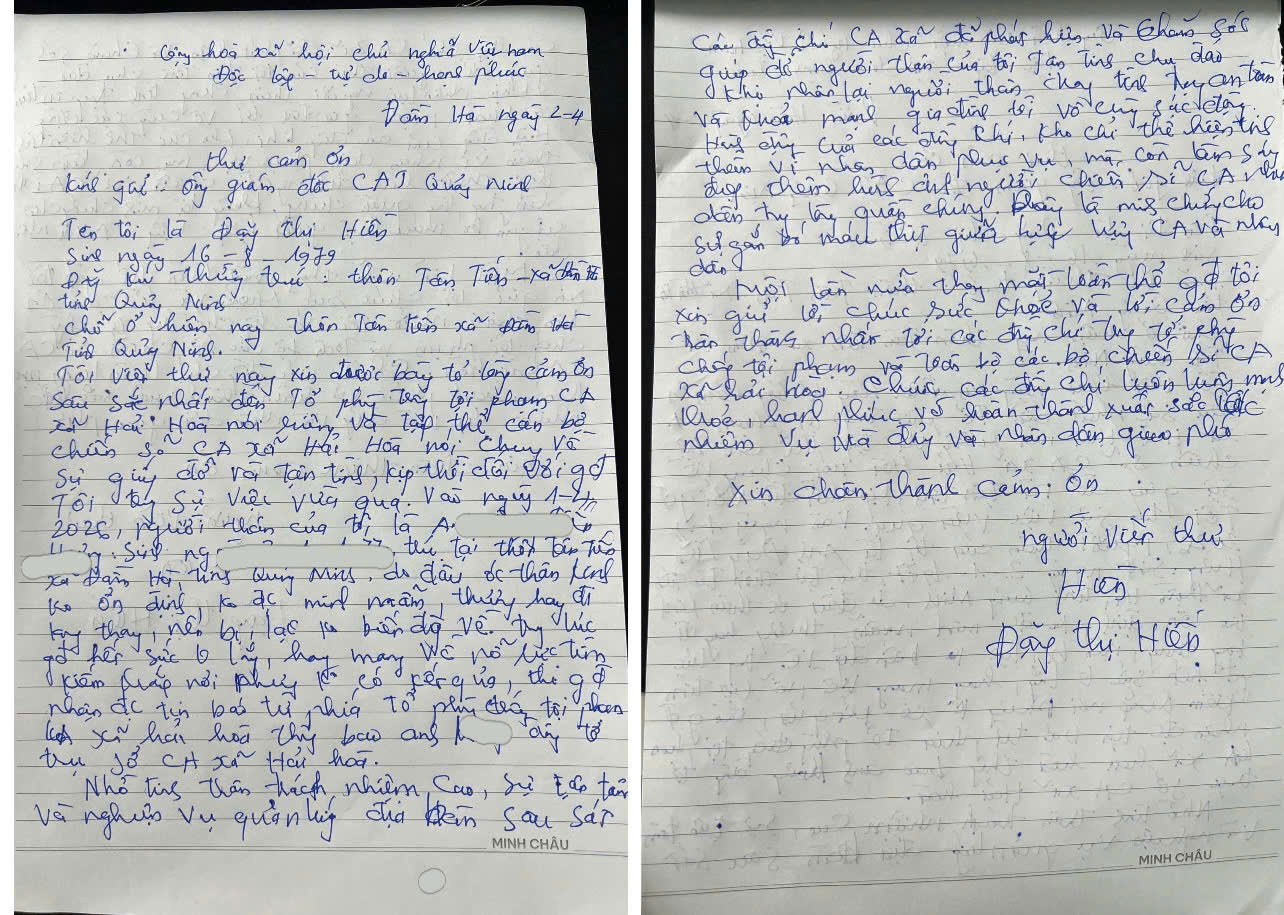 Cộng hoà xã hội chủ nghĩa việt nam
Độc lập - tự do - hạnh phúc
Đầm Hà ngày 2-4
thư cảm ơn
kính gửi: ông giám đốc CAT Quảng Ninh
Tên tôi là Đặng thị Hiền
Sinh ngày 16 - 8 - 1979
Đăng kí thường trú: thôn Tân Tiến - xã đầm Hà
tỉnh Quảng Ninh
chỗ ở hiện nay thôn Tân tiến xã Đầm Hà
Tỉnh Quảng Ninh.
Tôi viết thư này xin được bày tỏ lòng cảm ơn
sâu sắc nhất đến Tổ phòng tội phạm CA
xã Hải Hoà nói riêng và tập thể cán bộ
chiến sĩ CA xã Hải Hoà nói chung về
sự giúp đỡ và tận tình, kịp thời đối với gđ
Tôi trong sự việc vừa qua. Vào ngày 1-4
2026, người thân của tôi là A.
Sinh ng trú tại thôn tân tiến
xã Đầm Hà, tỉnh Quảng Ninh, do đầu óc thần kinh
ko ổn định, ko đc minh mẫn, thường hay đi
lang thang, nên bị lạc ko biết đg về. trong lúc
gđ hết sức lo lắng, hoang mang và nỗ lực tìm
kiếm khắp nơi nhưng ko có kết quả, thì gđ
nhận đc tin báo từ phía tổ phòng chống tội phạm
CA xã hải hoà thông báo anh đang ở
trụ sở CA xã Hải hoà.
Nhờ tinh thần trách nhiệm cao, sự tận tâm
và nghiệp vụ quản lý địa bàn sâu sát
Các đồng chí CA xã đã phát hiện và chăm sóc
giúp đỡ người thân của tôi tận tình chu đáo
khi nhận lại người thân trong tình trạng an toàn
và khoẻ mạnh gia đình tôi vô cùng xúc động.
Hành động của các đồng chí, ko chỉ thể hiện tinh
thần vì nhân dân phục vụ, mà còn làm sáng
đẹp thêm hình ảnh người chiến sĩ CA nhân
dân trong lòng quần chúng. Đây là minh chứng cho
sự gắn bó máu thịt giữa lực lượng CA và nhân
dân.
Một lần nữa thay mặt toàn thể gđ tôi
xin gửi lời chúc sức khoẻ và lời cảm ơn
chân thành nhất tới các đồng chí trong tổ phòng
chống tội phạm và toàn bộ cán bộ, chiến sĩ CA
xã hải hoà. Chúc các đồng chí luôn luôn mạnh
khoẻ, hạnh phúc và hoàn thành xuất sắc các
nhiệm vụ mà đảng và nhân dân giao phó
Xin chân thành cảm ơn
người viết thư
Hiền
Đặng thị Hiền
MINH CHÂU
MINH CHÂU